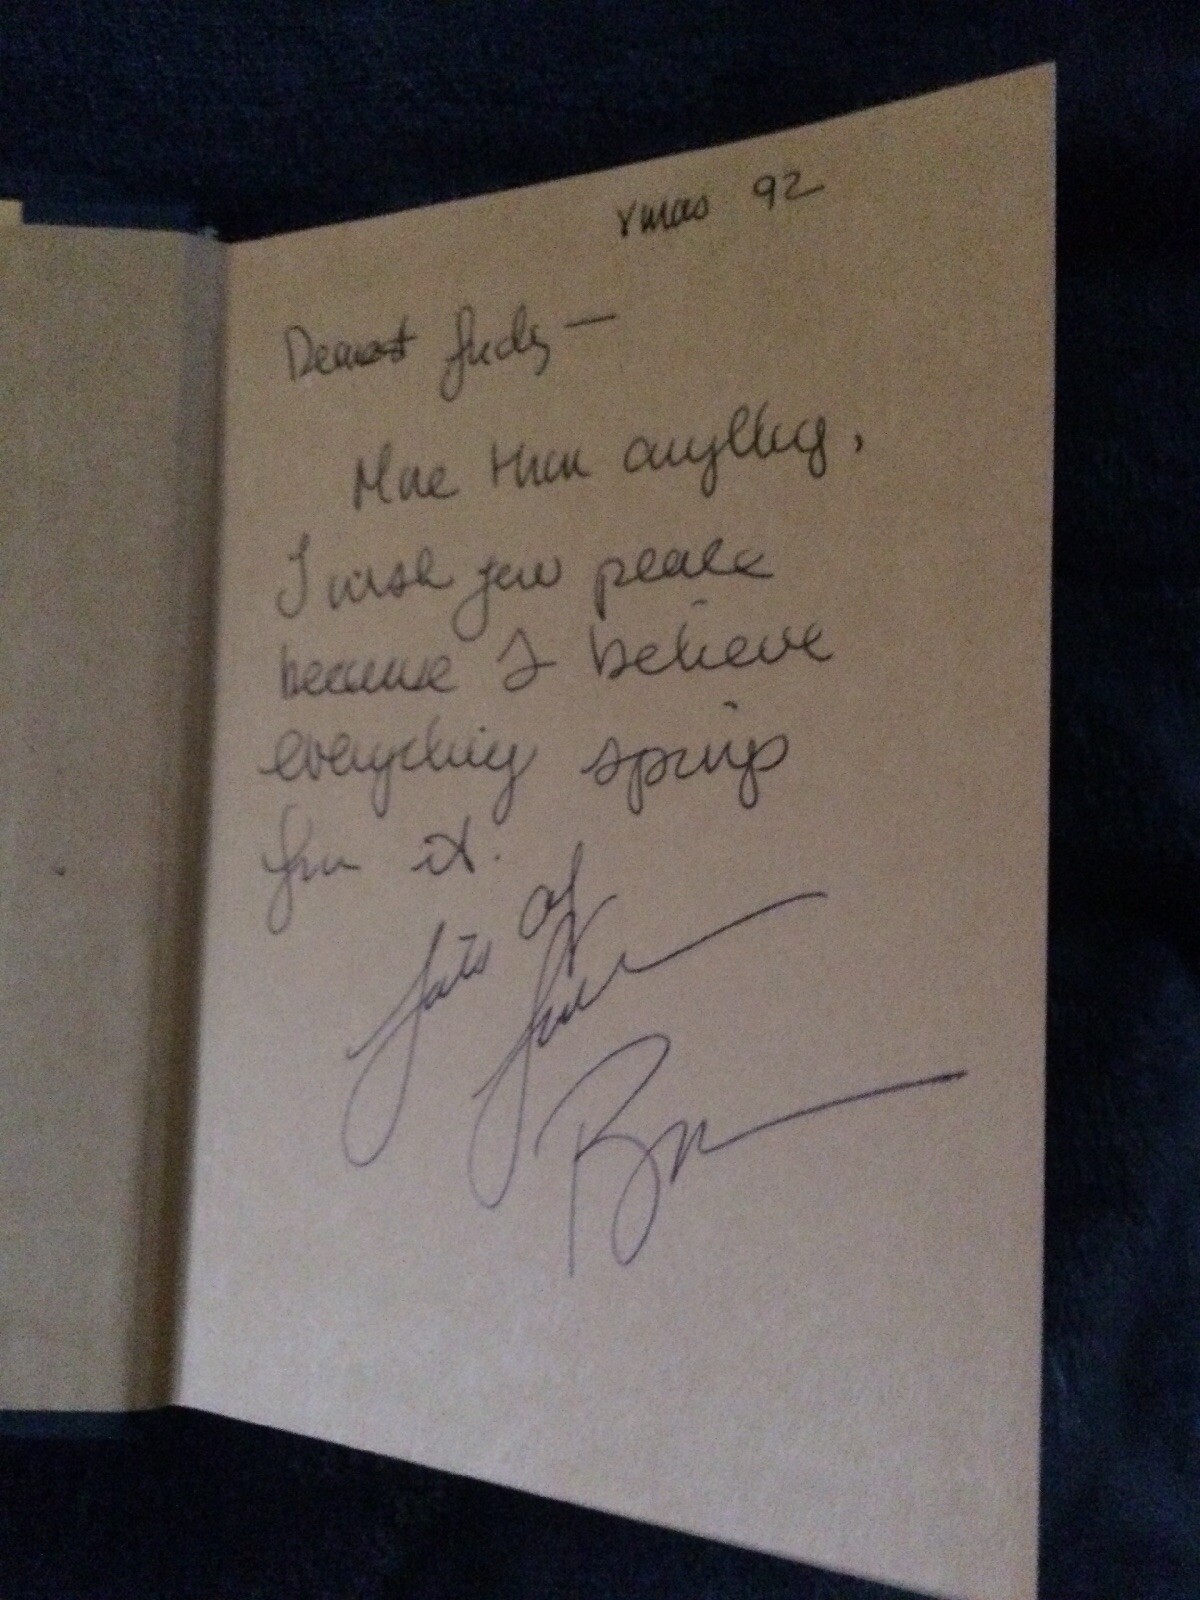 Xmas 92
Dearest Judy —
More than anything,
I wish you peace
because I believe
everything springs
from it.
Lots of
love